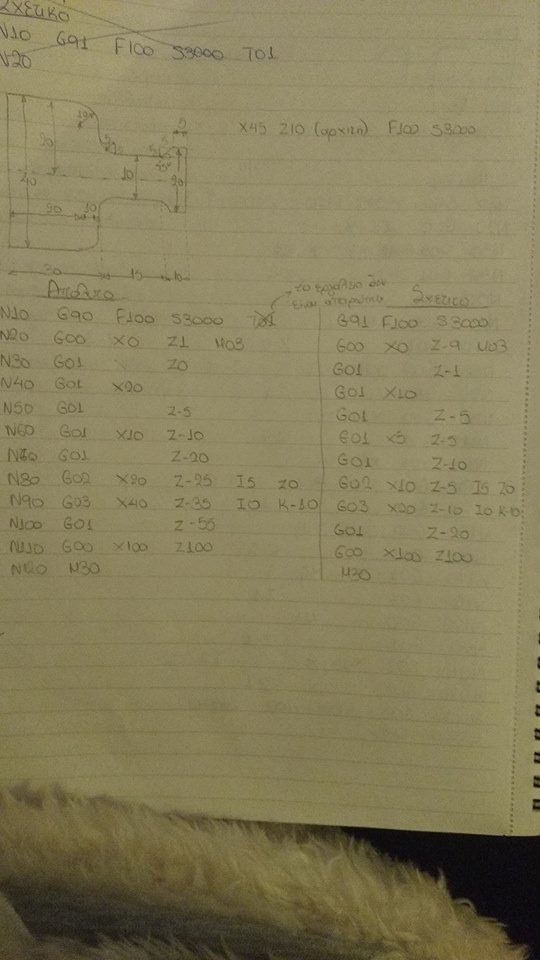 Σχετικό
N10 G91 F100 S3000 T01
N20
X45 Z10 (αρχικη) F100 S3000
5
20
5
45°
40
10
20
20 10
30 15 10
το εργαλειο δεν
ειναι απαραιτητο
Απόλυτο Σχετικο
N10 G90 F100 S3000 T01 G91 F100 S3000
N20 G00 X0 Z1 M03 G00 X0 Z-9 M03
N30 G01 Z0 G01 Z-1
N40 G01 X20 G01 X10
N50 G01 Z-5 G01 Z-5
N60 G01 X10 Z-10 G01 X5 Z-5
N70 G01 Z-20 G01 Z-10
N80 G02 X20 Z-25 I5 Z0 G02 X10 Z-5 I5 Z0
N90 G03 X40 Z-35 I0 K-10 G03 X20 Z-10 I0 K-10
N100 G01 Z-55 G01 Z-20
N110 G00 X100 Z100 G00 X100 Z100
N120 M30 M30